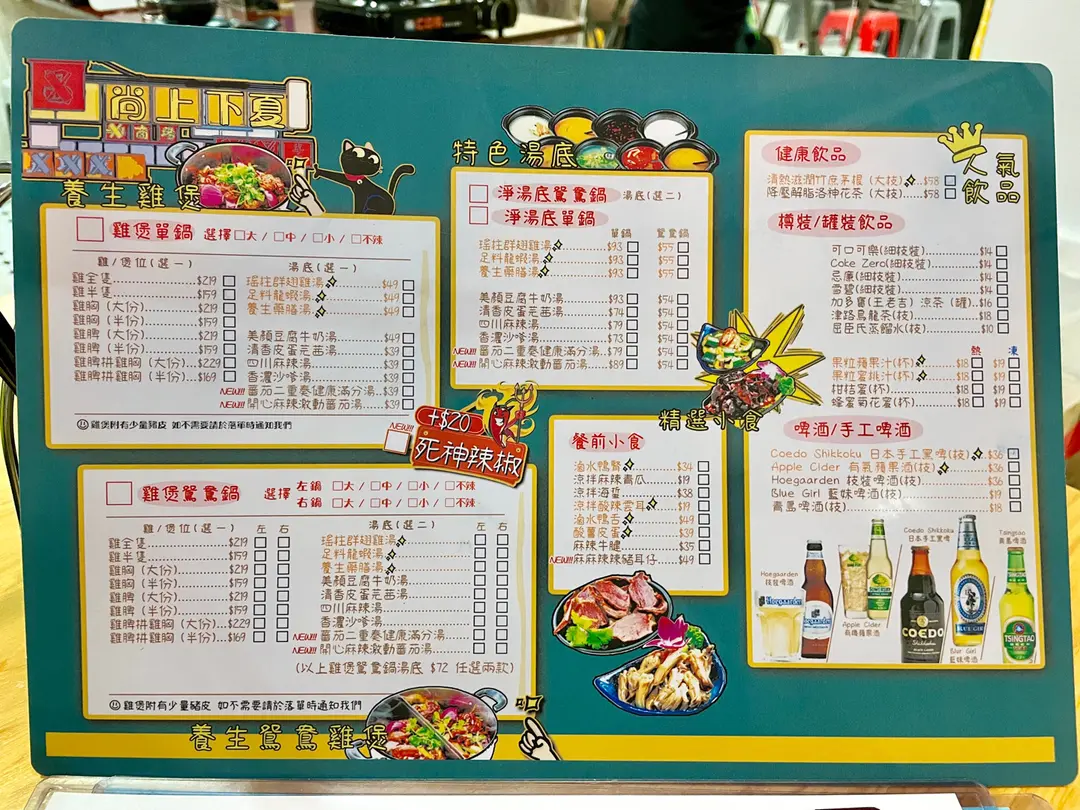 尚上下夏
養生雞煲
雞煲單鍋 選擇□大/□中/□小/□不辣
雞/煲位(選一)
雞全隻$219
雞半隻$159
雞胸(大份)$219
雞胸(半份)$159
雞脾(大份)$219
雞脾(半份)$159
雞脾拼雞胸(大份)$229
雞脾拼雞胸(半份)$169
湯底(選一)
瑤柱群翅雞湯$49
足料龍蝦湯$49
養生藥膳湯$49
美顏豆腐牛奶湯$49
清香皮蛋芫茜湯$39
四川麻辣湯$39
香濃沙嗲湯$39
NEW!!! 蕃茄二重奏健康滿分湯$39
NEW!!! 開心麻辣激動蕃茄湯$39
雞煲附有少量豬皮 如不需要請於落單時通知我們
NEW!!!
+$20
死神辣椒
雞煲鴛鴦鍋 選擇
左鍋 □大/□中/□小/□不辣
右鍋 □大/□中/□小/□不辣
雞/煲位(選一) 左 右
雞全隻$219
雞半隻$159
雞胸(大份)$219
雞胸(半份)$159
雞脾(大份)$219
雞脾(半份)$159
雞脾拼雞胸(大份)$229
雞脾拼雞胸(半份)$169
湯底(選二) 左 右
瑤柱群翅雞湯
足料龍蝦湯
養生藥膳湯
美顏豆腐牛奶湯
清香皮蛋芫茜湯
四川麻辣湯
香濃沙嗲湯
NEW!!! 蕃茄二重奏健康滿分湯
NEW!!! 開心麻辣激動蕃茄湯
(以上雞煲鴛鴦鍋湯底 $72 任選兩款)
雞煲附有少量豬皮 如不需要請於落單時通知我們
養生鴛鴦雞煲
特色湯底
淨湯底鴛鴦鍋 湯底(選二)
淨湯底單鍋
單鍋 鴛鴦鍋
瑤柱群翅雞湯$93 $55
足料龍蝦湯$93 $55
養生藥膳湯$93 $55
美顏豆腐牛奶湯$93 $54
清香皮蛋芫茜湯$74 $54
四川麻辣湯$79 $54
香濃沙嗲湯$73 $54
NEW!!! 蕃茄二重奏健康滿分湯$79 $54
NEW!!! 開心麻辣激動蕃茄湯$89 $54
精選小食
餐前小食
滷水鴨腎$34
涼拌麻辣青瓜$19
涼拌海蜇$38
涼拌酸辣雲耳$19
滷水鴨舌$49
酸薑皮蛋$39
麻辣牛腱$35
NEW!!! 麻麻辣辣豬耳仔$49
人氣飲品
健康飲品
清熱滋潤竹庶茅根(大枝)$58
降壓解脂洛神花茶(大枝)$58
樽裝/罐裝飲品
可口可樂(細枝裝)$14
Coke Zero(細枝裝)$14
忌廉(細枝裝)$14
雪碧(細枝裝)$14
加多寶(王老吉)涼茶(罐)$16
津路烏龍茶(枝)$18
屈臣氏蒸餾水(枝)$10
熱 凍
果粒蘋果汁(杯)$18 $19
果粒蜜桃汁(杯)$18 $19
柑桔蜜(杯)$18 $19
蜂蜜菊花蜜(杯)$18 $19
啤酒/手工啤酒
Coedo Shikkoku 日本手工黑啤(枝)$36
Apple Cider 有氣蘋果酒(枝)$36
Hoegaarden 枝裝啤酒(枝)$36
Blue Girl 藍妹啤酒(枝)$19
青島啤酒(枝)$18
Hoegaarden
枝裝啤酒
Hoegaarden
Apple Cider
有氣蘋果酒
Coedo Shikkoku
日本手工黑啤
COEDO
Shikkoku
BLUE GIRL
Blue Girl
藍妹啤酒
Tsingtao
青島啤酒
TSINGTAO